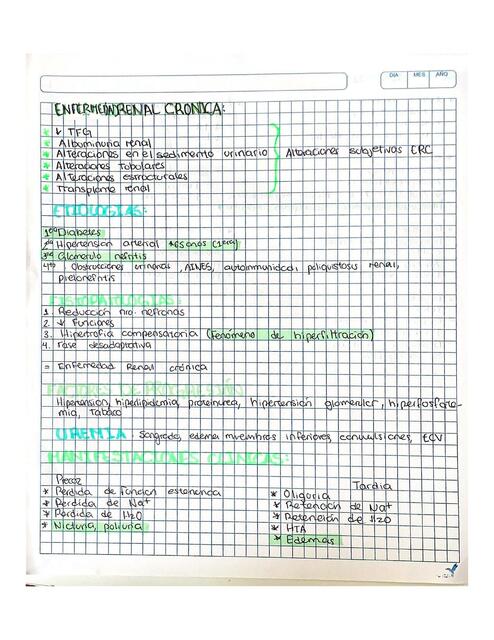 DIA MES AÑO
ENFERMEDAD RENAL CRONICA:
* ↓ TFG
* Albuminuria renal
* Alteraciones en el sedimento urinario
* Alteraciones tubulares
* Alteraciones estructurales
* Transplante renal
Alteraciones subjetivas ERC
ETIOLOGIAS:
1era Diabetes
2da Hipertension arterial
3era Glomerulo nefritis
4to Obstrucciones urinarias, AINES, autoinmunidad, poliquistosis renal,
pielonefritis
FISIOPATOLOGIAS:
1. Reducción nro. nefronas
2. ↓ Funciones
3. Hipertrofia compensatoria (Fenómeno de hiperfiltración)
4. Fase desadaptativa
= Enfermedad Renal crónica
FACTORES DE PROGRESIÓN
Hipertension, hiperlipidemia, proteinurea, hipertensión glomeruler, hiperfosfore-
mia, Tabaco
UREMIA: Sangrado, edema miembros inferiores, convulsiones, ECV
MANIFESTACIONES CLINICAS:
Precoz
* Perdida de función
* Perdida de Na+
* Perdida de H2O
* Nicturia, poliuria
Tardia
* Oliguria
* Retencion de Na+
* Retención de H2O
* HTA
* Edemas